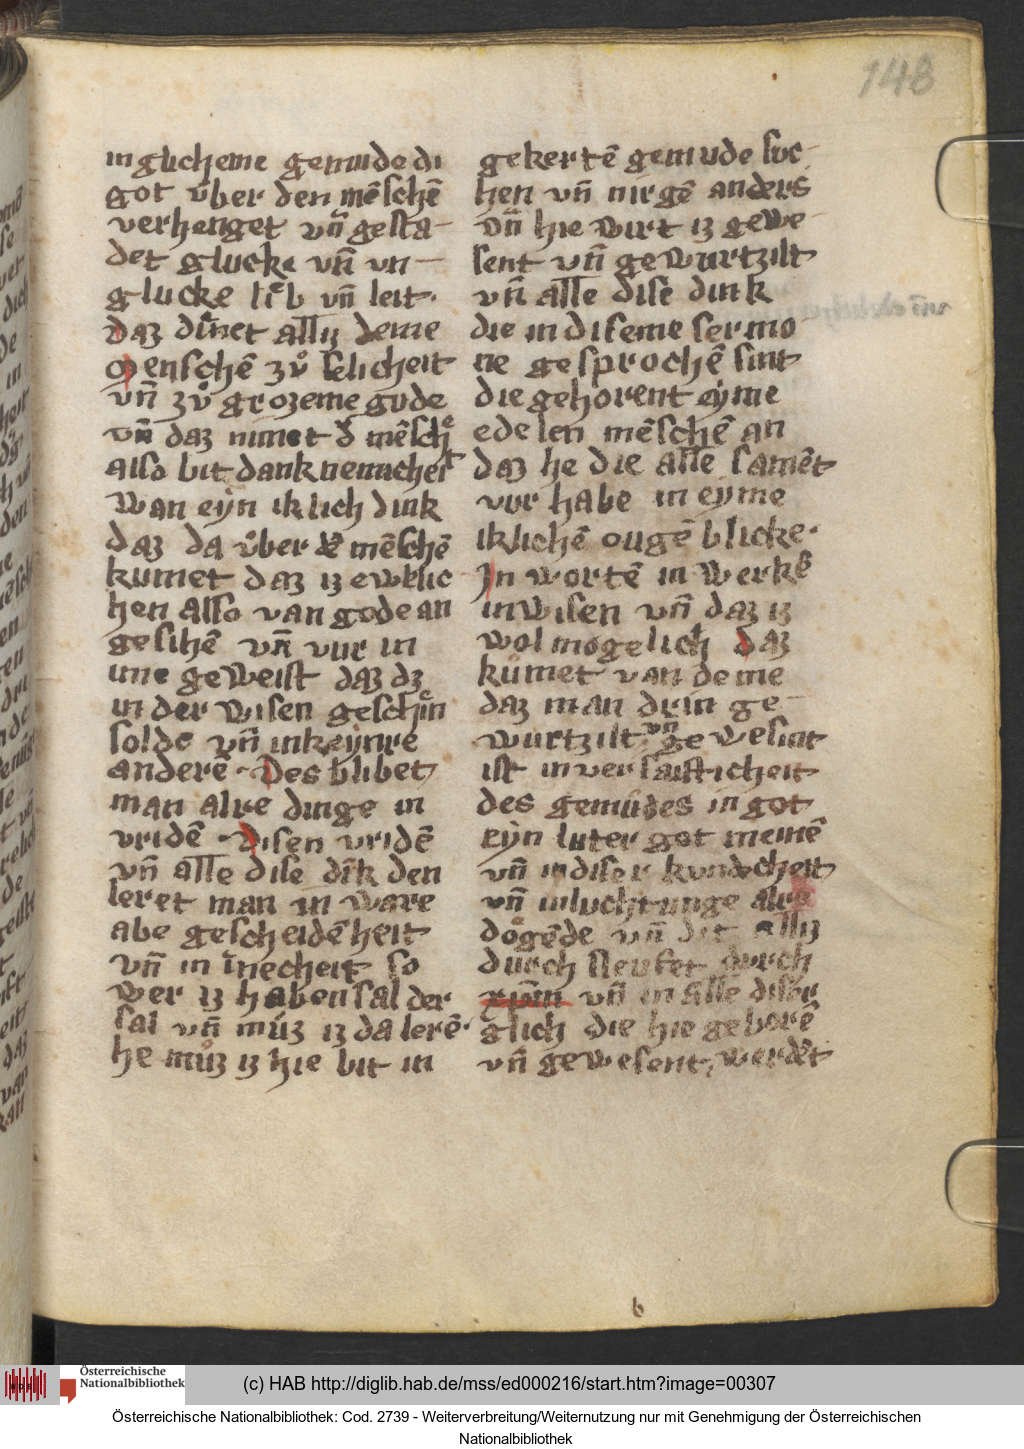 148
in glicheme gemude di
got uͤber den mēschē
verhenget vn̄ gesta-
det glucke vn̄ vn-
glucke lieb vn̄ leit·
daz duͤnet alliz deme
menschē zuͦ selicheit
vn̄ zuͦ grozeme gude
vn̄ daz nimet d' mēsche
also bit danknemicheit
Wan eẏn iklich dink
daz da uͤber dē mēschē
kumet daz iz ewklic
hen also van gode an
gesihē vn̄ vur in
ime geweist daz dz
in der wisen geschiͤn
solde vn̄ in keẏnre
anderē· Des blibet
man alre dinge in
vridē · Disen vridē
vn̄ alle dise diͤk den
leret man in ware
abe gescheidēheit
vn̄ in inecheit so
wer iz haben sal der
sal vn̄ muͤz iz da lerē·
he muͦz iz hie bit in
gekertē gemude suc-
hen vn̄ nirgē anders
vn̄ hie wirt iz gewe-
sent vn̄ gewurtzilt
vn̄ alle dise dink
die in diseme sermo-
ne gesprochē sint
die gehorent eẏme
edelen mēschē an
daz he die alle samēt
vor habe in eẏme
iklichē ougē blicke·
In wortē in werkē
in wisen vn̄ daz iz
wol mogelich daz
kuͦmet van deme
daz man drin ge-
wurtzilt vn̄ gewesint
ist in versaisticheit
des gemuͤdes in got
eẏn luter got meinē
vn̄ in diser kundcheit
vn̄ inluchtunge alre
doͤgēde vn̄ dit alliz
durch sleufet durch
vn̄ in alle diser
glich die hie geborē
vn̄ gewesent, werdēt
b
Österreichische
Nationalbibliothek
(c) HAB http://diglib.hab.de/mss/ed000216/start.htm?image=00307
Österreichische Nationalbibliothek: Cod. 2739 - Weiterverbreitung/Weiternutzung nur mit Genehmigung der Österreichischen
Nationalbibliothek